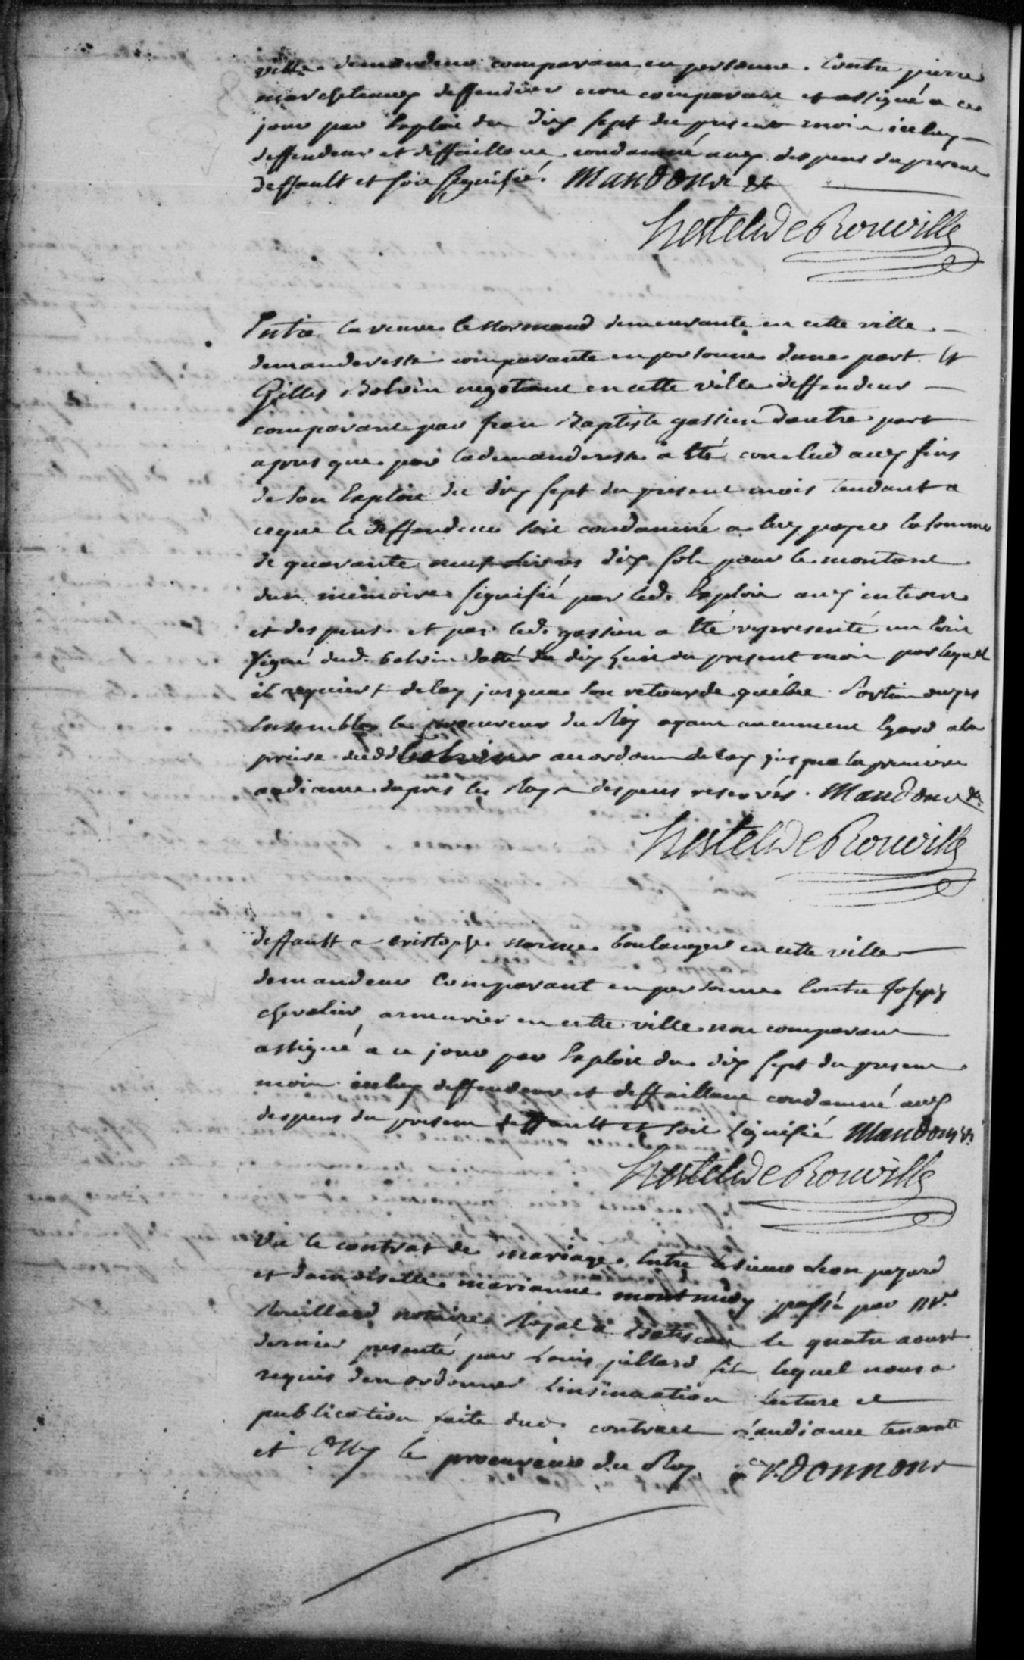 ville demandeur comparant en personne. Contre pierre
marcheteaux deffendeur non comparant et assigné a ce
jour par Exploit du dix sept du present mois iceluy
deffendeur et deffaillant condamné aux despens du present
deffault et soit signifié. Mandons &c
hertel de Rouville
Entre la veuve lenormand demeurante en cette ville
demanderesse comparante en personne dune part. Et
Gilles Bolvin negotiant en cette ville deffendeur
comparant par jean Baptiste gastien dautre part
apres que par lademanderesse a Eté conclud aux fins
de son Exploit du dix sept du present mois tendant a
ceque le deffendeur soit condamné a luy payer la somme
de quarante neuf livres dix sols pour le montant
dun mémoire signifié par led. Exploit aux interets
et despens. et par led. gastien a Eté representé un
signé dud. bolvin datté du dix huit du present mois par lequel
il requiert delay jusqua son retour de québec. Parties ouyes
Ensemble le procureur du Roy ayant aucunement Egard a la
priere dud bolvin accordons delay jusqua la premiere
audiance dapres les Roys despens reservés. Mandons &c
hertel de Rouville
deffault a cristophe boulanger en cette ville
demandeur Comparant en personne Contre Joseph
chevalier armurier en cette ville non comparant
assigné a ce jour par Exploit du dix sept du present
mois iceluy deffendeur et deffaillant condamné aux
despens du present deffault et soit signifié Mandons &c
hertel de Rouville
Vu le contrat de mariage Entre le sieur Leon pezard
et damoiselle marianne montmidy passé par Me
Rouillard notaire Royal a Batiscan le quatre aoust
dernier presenté par Louis pillard fils lequel nous a
requis den ordonner linsinuation lecture et
publication faite dud. contract Laudiance tenante
et Ouy le procureur du Roy ordonnons